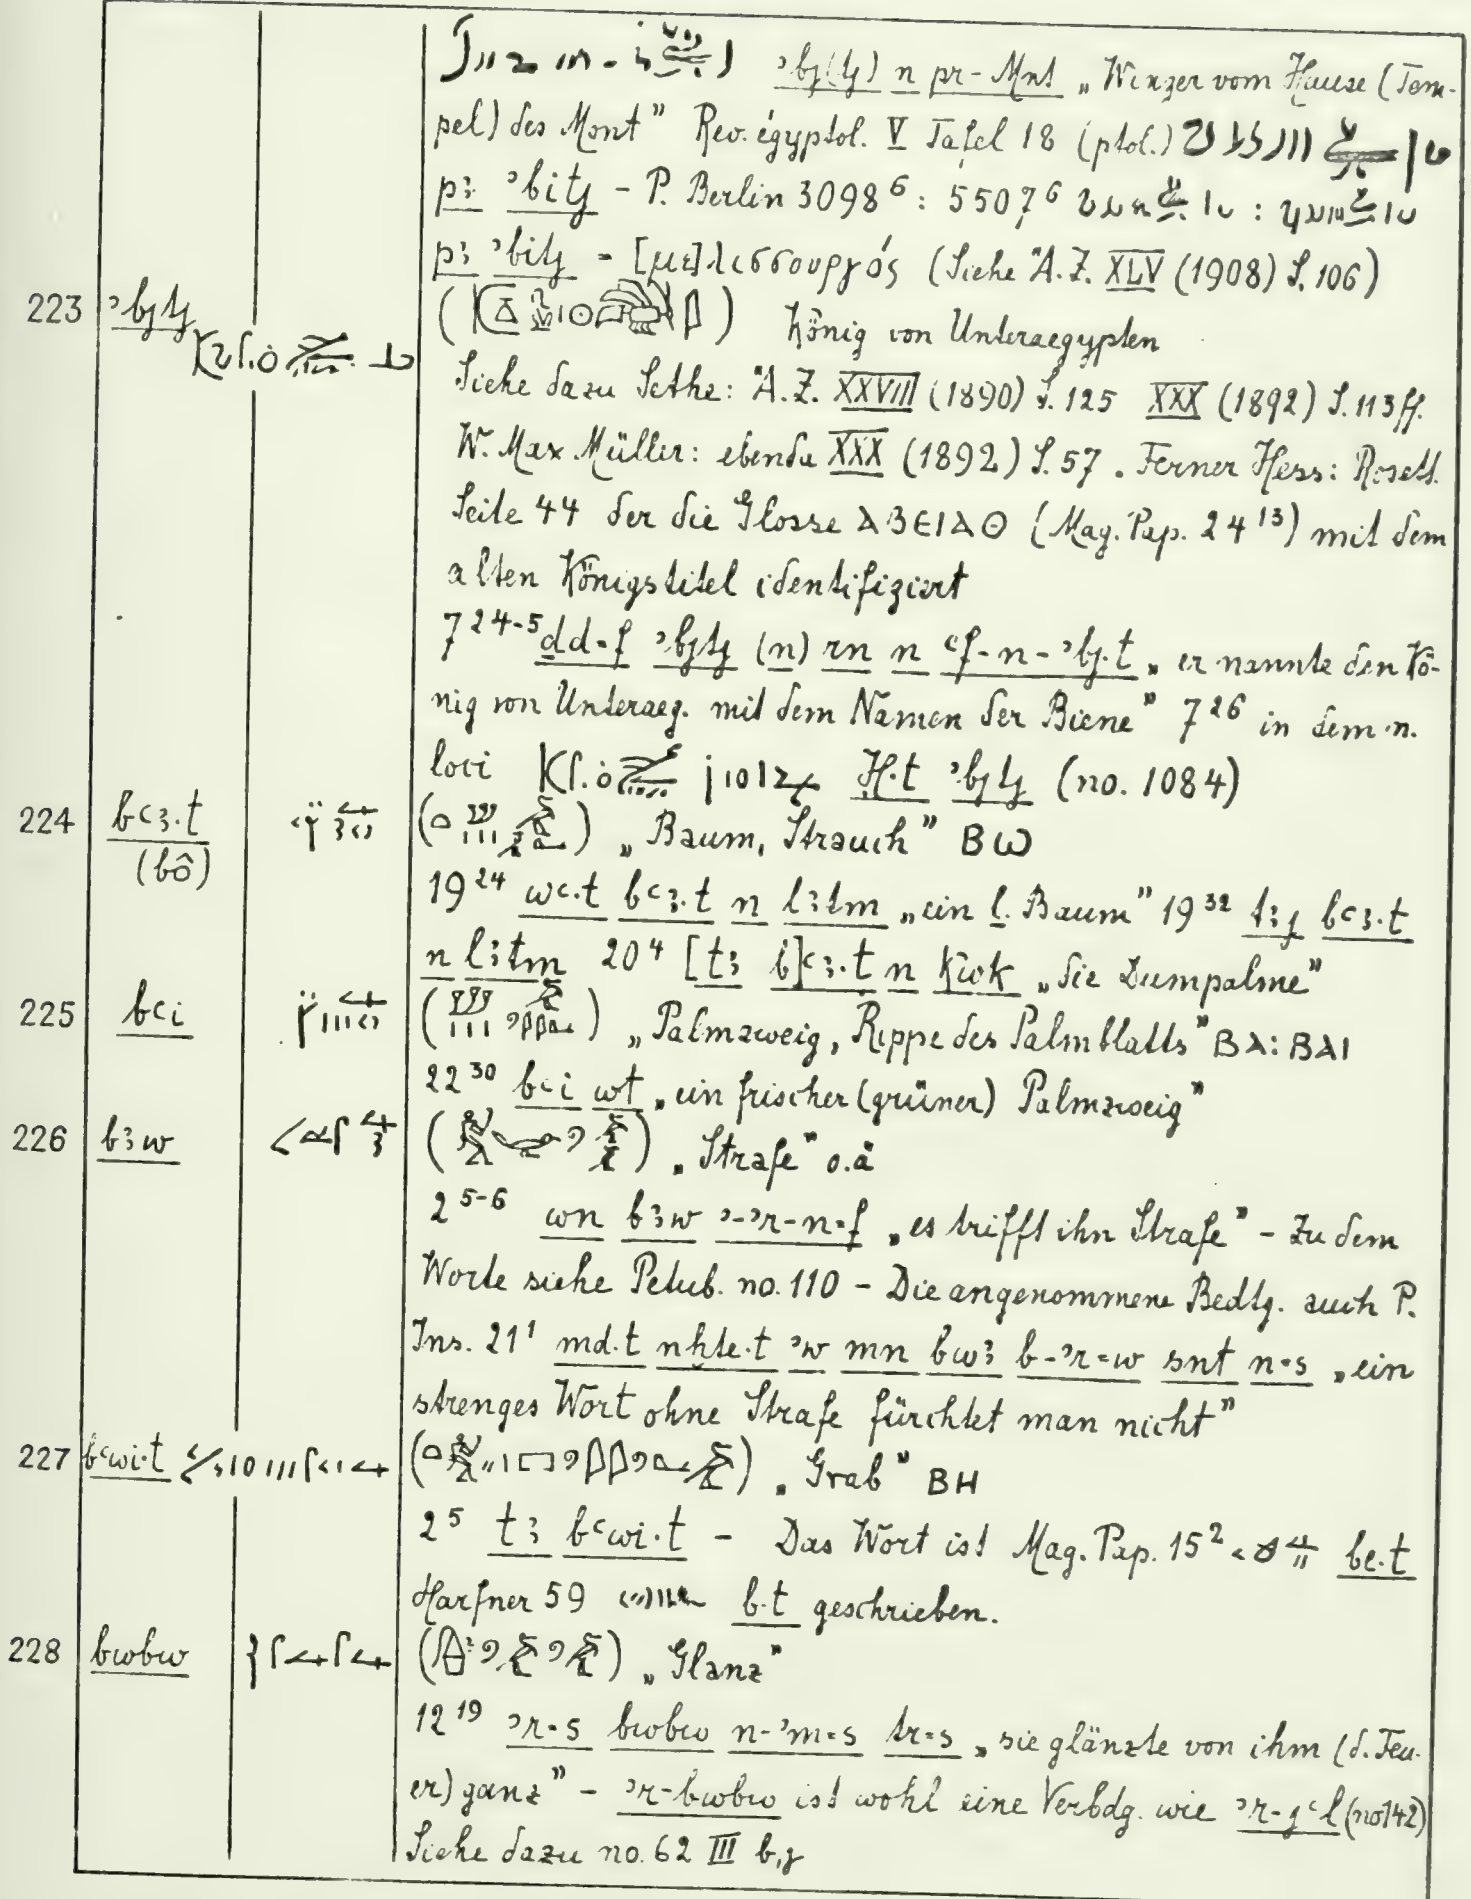 ꜣbj(tj) n pr-Mnt „Winzer vom Hause (Tem-
pel) des Mont” Rev. égyptol. V Tafel 18 (ptol.)
pꜣ ʾbitj - P. Berlin 3098⁶ : 5507⁶
pꜣ ʾbitj = [με]λισσουργός (Siehe Ä.Z. XLV (1908) S. 106)
223 ʾbjtj König von Unteraegypten
Siehe dazu Sethe: Ä.Z. XXVIII (1890) S. 125 XXX (1892) S. 113 ff.
W. Max Müller: ebenda XXX (1892) S. 57. Ferner Hess: Rosett.
Seite 44 der die Glosse ⲀⲂⲈⲒⲀⲐ (Mag. Pap. 24¹³) mit dem
alten Königstitel identifiziert
7²⁴⁻⁵ ḏd=f ʾbjtj (n) rn n ꜥf-n-ʾbj.t „er nannte den Kö-
nig von Unteraeg. mit dem Namen der Biene” 7²⁶ in dem n.
loci H.t ʾbjtj (no. 1084)
224 bꜥꜣ.t (bô) „Baum, Strauch” ⲂⲰ
19²⁴ wꜥ.t bꜥꜣ.t n lꜣtm „ein l. Baum” 19³² tꜣj bꜥꜣ.t
n lꜣtm 20⁴ [tꜣ b]ꜥꜣ.t n kwk „die Dumpalme”
225 bꜥi „Palmzweig, Rippe des Palmblatts” ⲂⲀ: ⲂⲀⲒ
22³⁰ bꜥi wt „ein frischer (grüner) Palmzweig”
226 bꜣw „Strafe” o.ä
2⁵⁻⁶ wn bꜣw ʾ-ʾr-n=f „es trifft ihn Strafe” - Zu dem
Worte siehe Petub. no. 110 - Die angenommene Bedtg. auch P.
Ins. 21¹ md.t nḫte.t ʾw mn bwꜣ b-ʾr=w snt n=s „ein
strenges Wort ohne Strafe fürchtet man nicht”
227 bꜥwi.t „Grab” ⲂⲎ
2⁵ tꜣ bꜥwi.t - Das Wort ist Mag. Pap. 15² be.t
Harfner 59 b.t geschrieben.
228 bwbw „Glanz”
12¹⁹ ʾr=s bwbw n-ʾm=s tr=s „sie glänzte von ihm (d. Feu-
er) ganz” - ʾr-bwbw ist wohl eine Verbdg. wie ʾr-jꜥl (no 142)
Siehe dazu no. 62 III b,γ